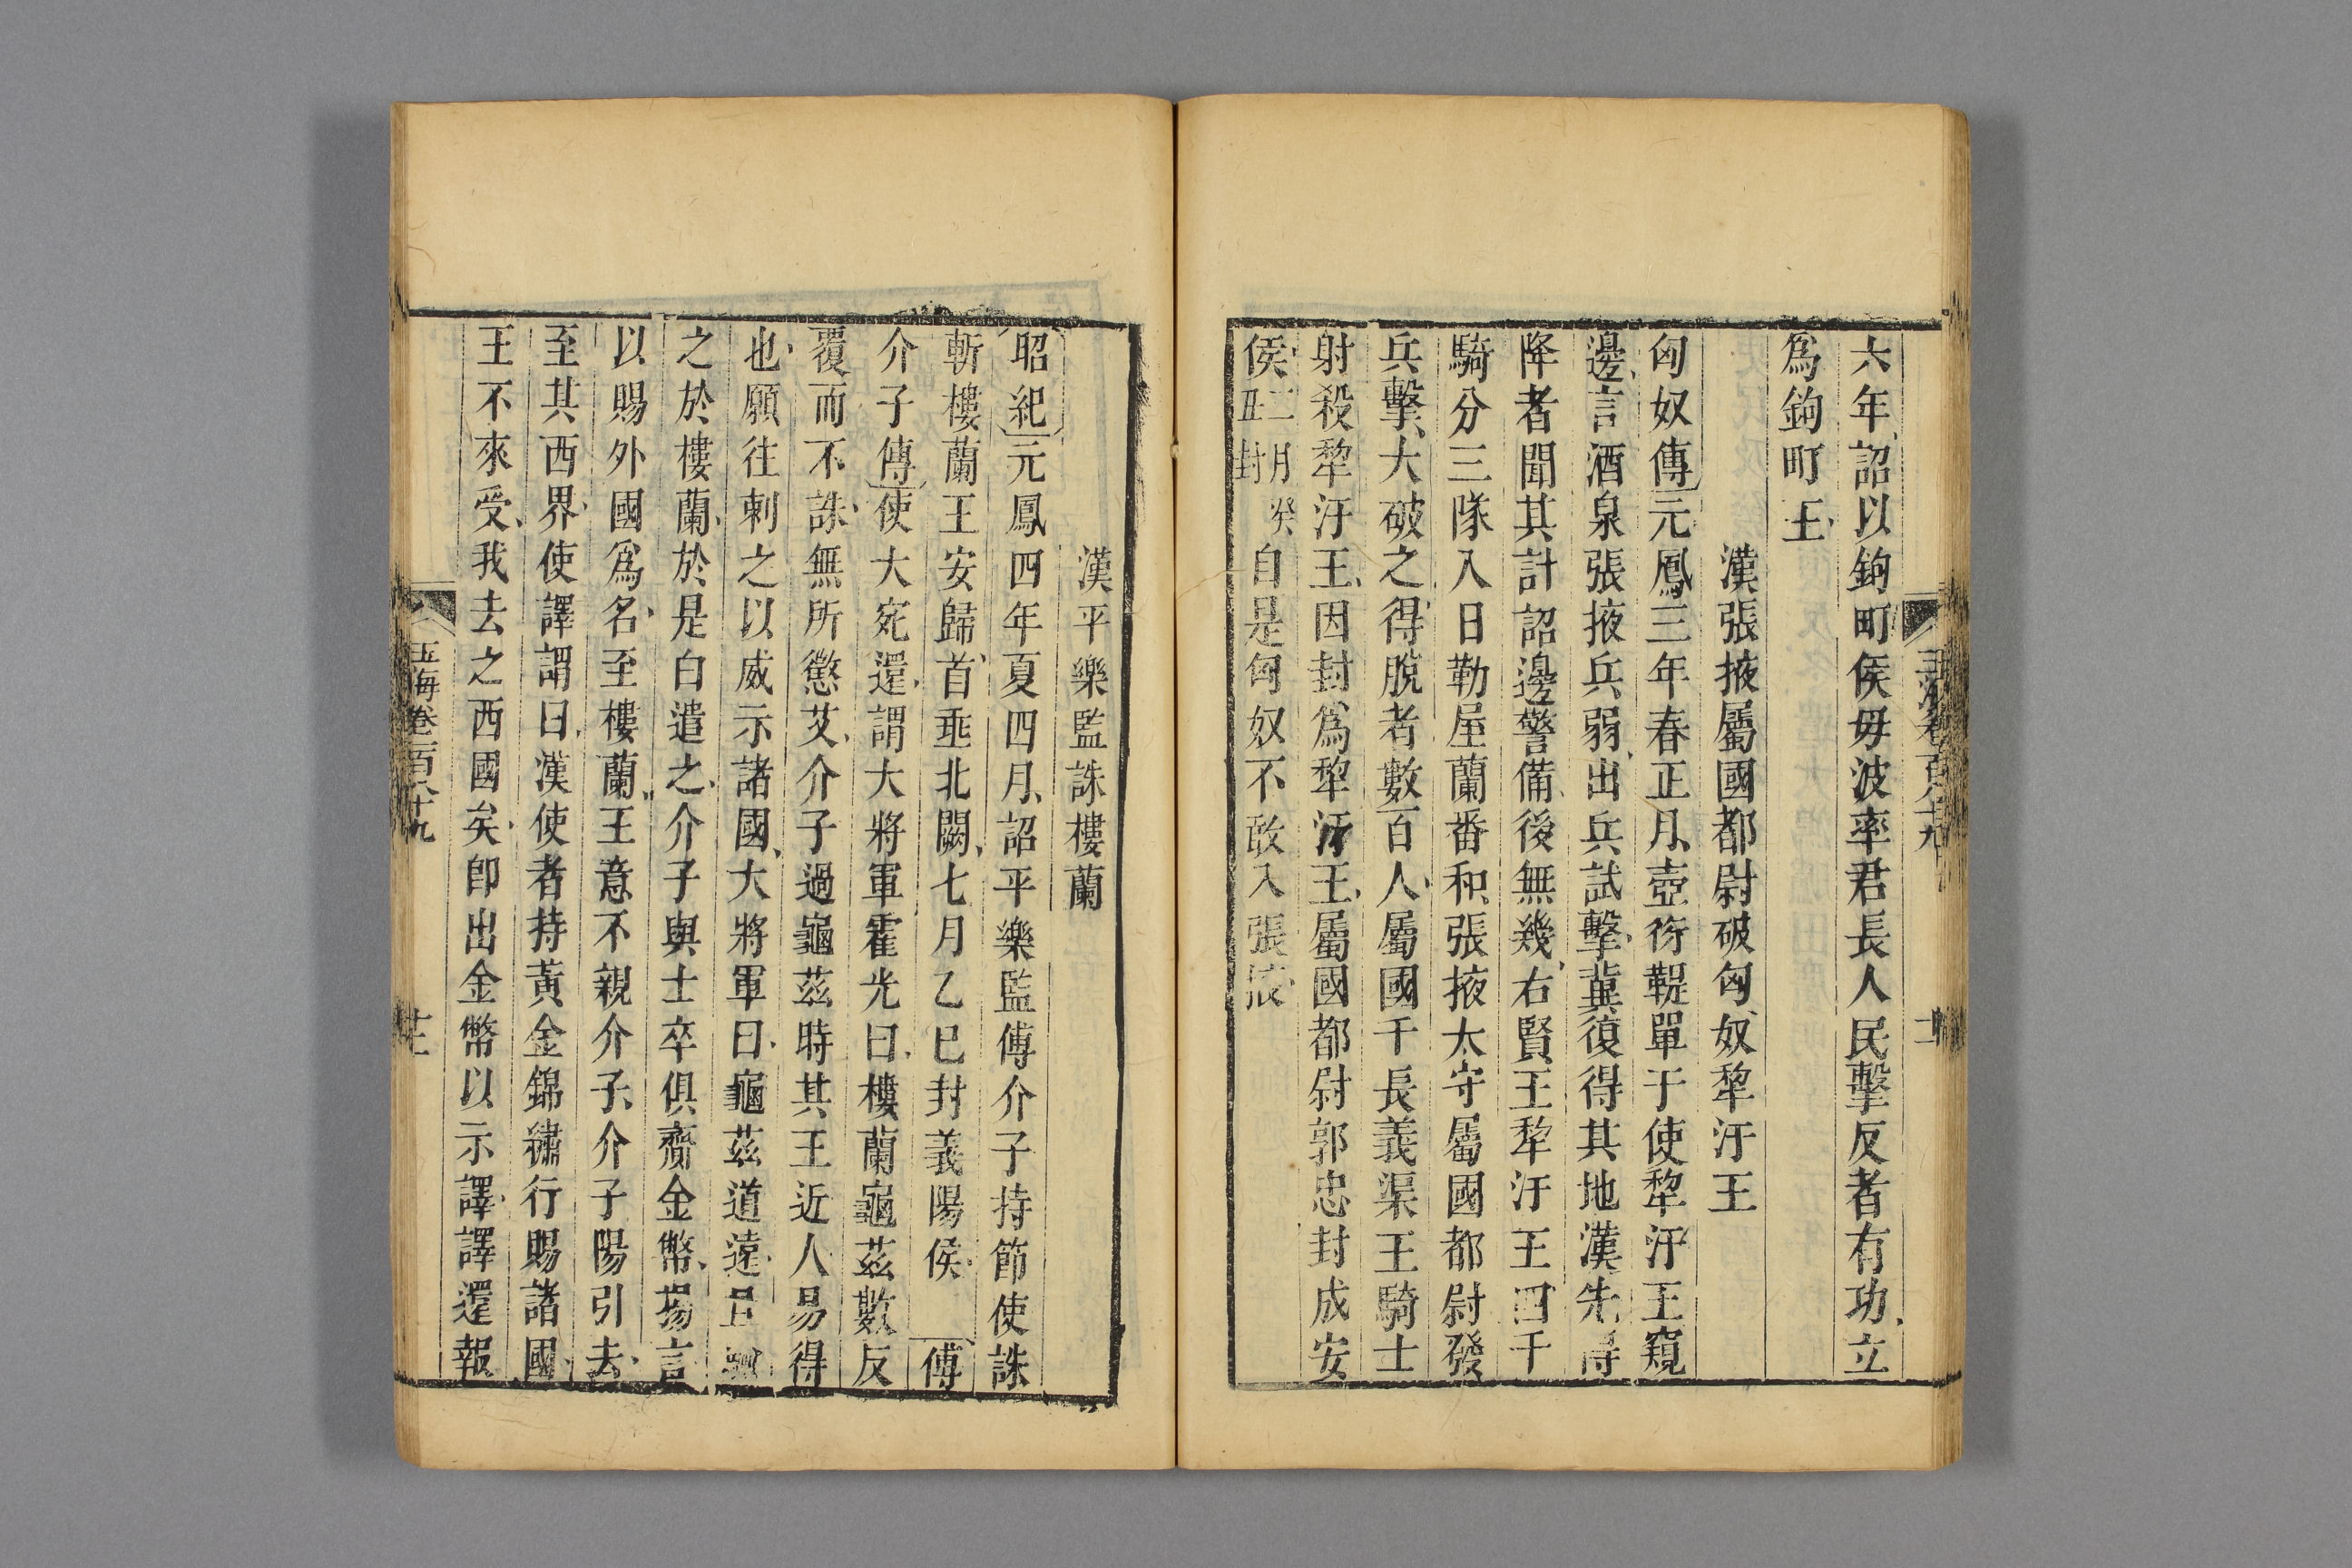 六年詔以鉤町侯毋波率君長人民擊反者有功立
爲鉤町王
漢張掖屬國都尉破匈奴犂汙王
匈奴傳元鳳三年春正月壺衍鞮單于使犂汙王窺
邊言酒泉張掖兵弱出兵試擊冀復得其地漢先得
降者聞其計詔邊警備後無幾右賢王犂汙王四千
騎分三隊入日勒屋蘭番和張掖太守屬國都尉發
兵擊大破之得脫者數百人屬國千長義渠王騎士
射殺犂汙王因封爲犂汙王屬國都尉郭忠封成安
侯二月癸丑封自是匈奴不敢入張掖
漢平樂監誅樓蘭
昭紀元鳳四年夏四月詔平樂監傅介子持節使誅
斬樓蘭王安歸首埀北闕七月乙巳封義陽侯 傅
介子傳使大宛還謂大將軍霍光曰樓蘭龜茲數反
覆而不誅無所懲艾介子過龜茲時其王近人易得
也願往刺之以威示諸國大將軍曰龜茲道遠且驗
之於樓蘭於是白遣之介子與士卒俱齎金幣揚言
以賜外國爲名至樓蘭王意不親介子介子陽引去
至其西界使譯謂曰漢使者持黃金錦繡行賜諸國
王不來受我去之西國矣卽出金幣以示譯譯還報
玉海卷一百八十九